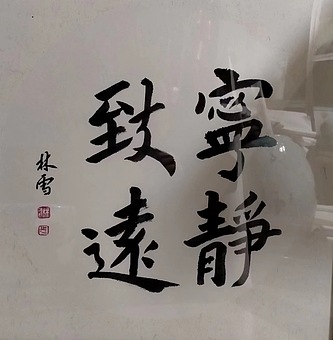 寧靜
致遠
林雪